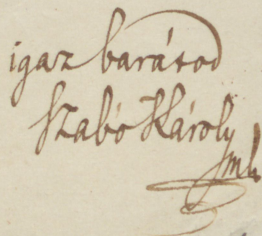 igaz barátod
Szabó Károly